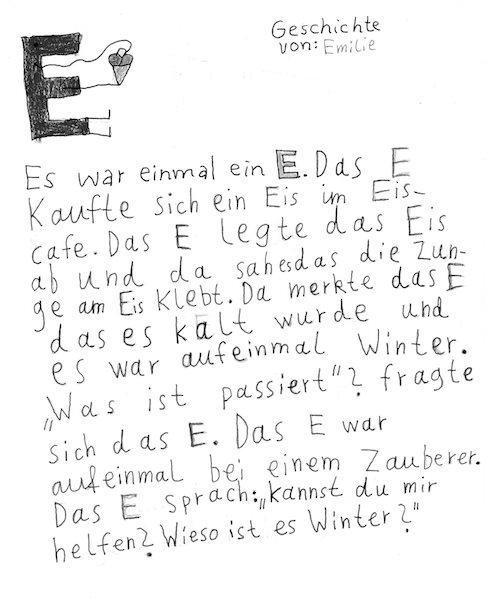 Geschichte
von: Emilie
Es war einmal ein E. Das E
Kaufte sich ein Eis im Eis-
cafe. Das E legte das Eis
ab und da sahesdas die Zun-
ge am Eis Klebt. Da merkte das E
das es kalt wurde und
es war aufeinmal Winter.
„Was ist passiert"? fragte
sich das E. Das E war
aufeinmal bei einem Zauberer.
Das E sprach: „kannst du mir
helfen? Wieso ist es Winter?"